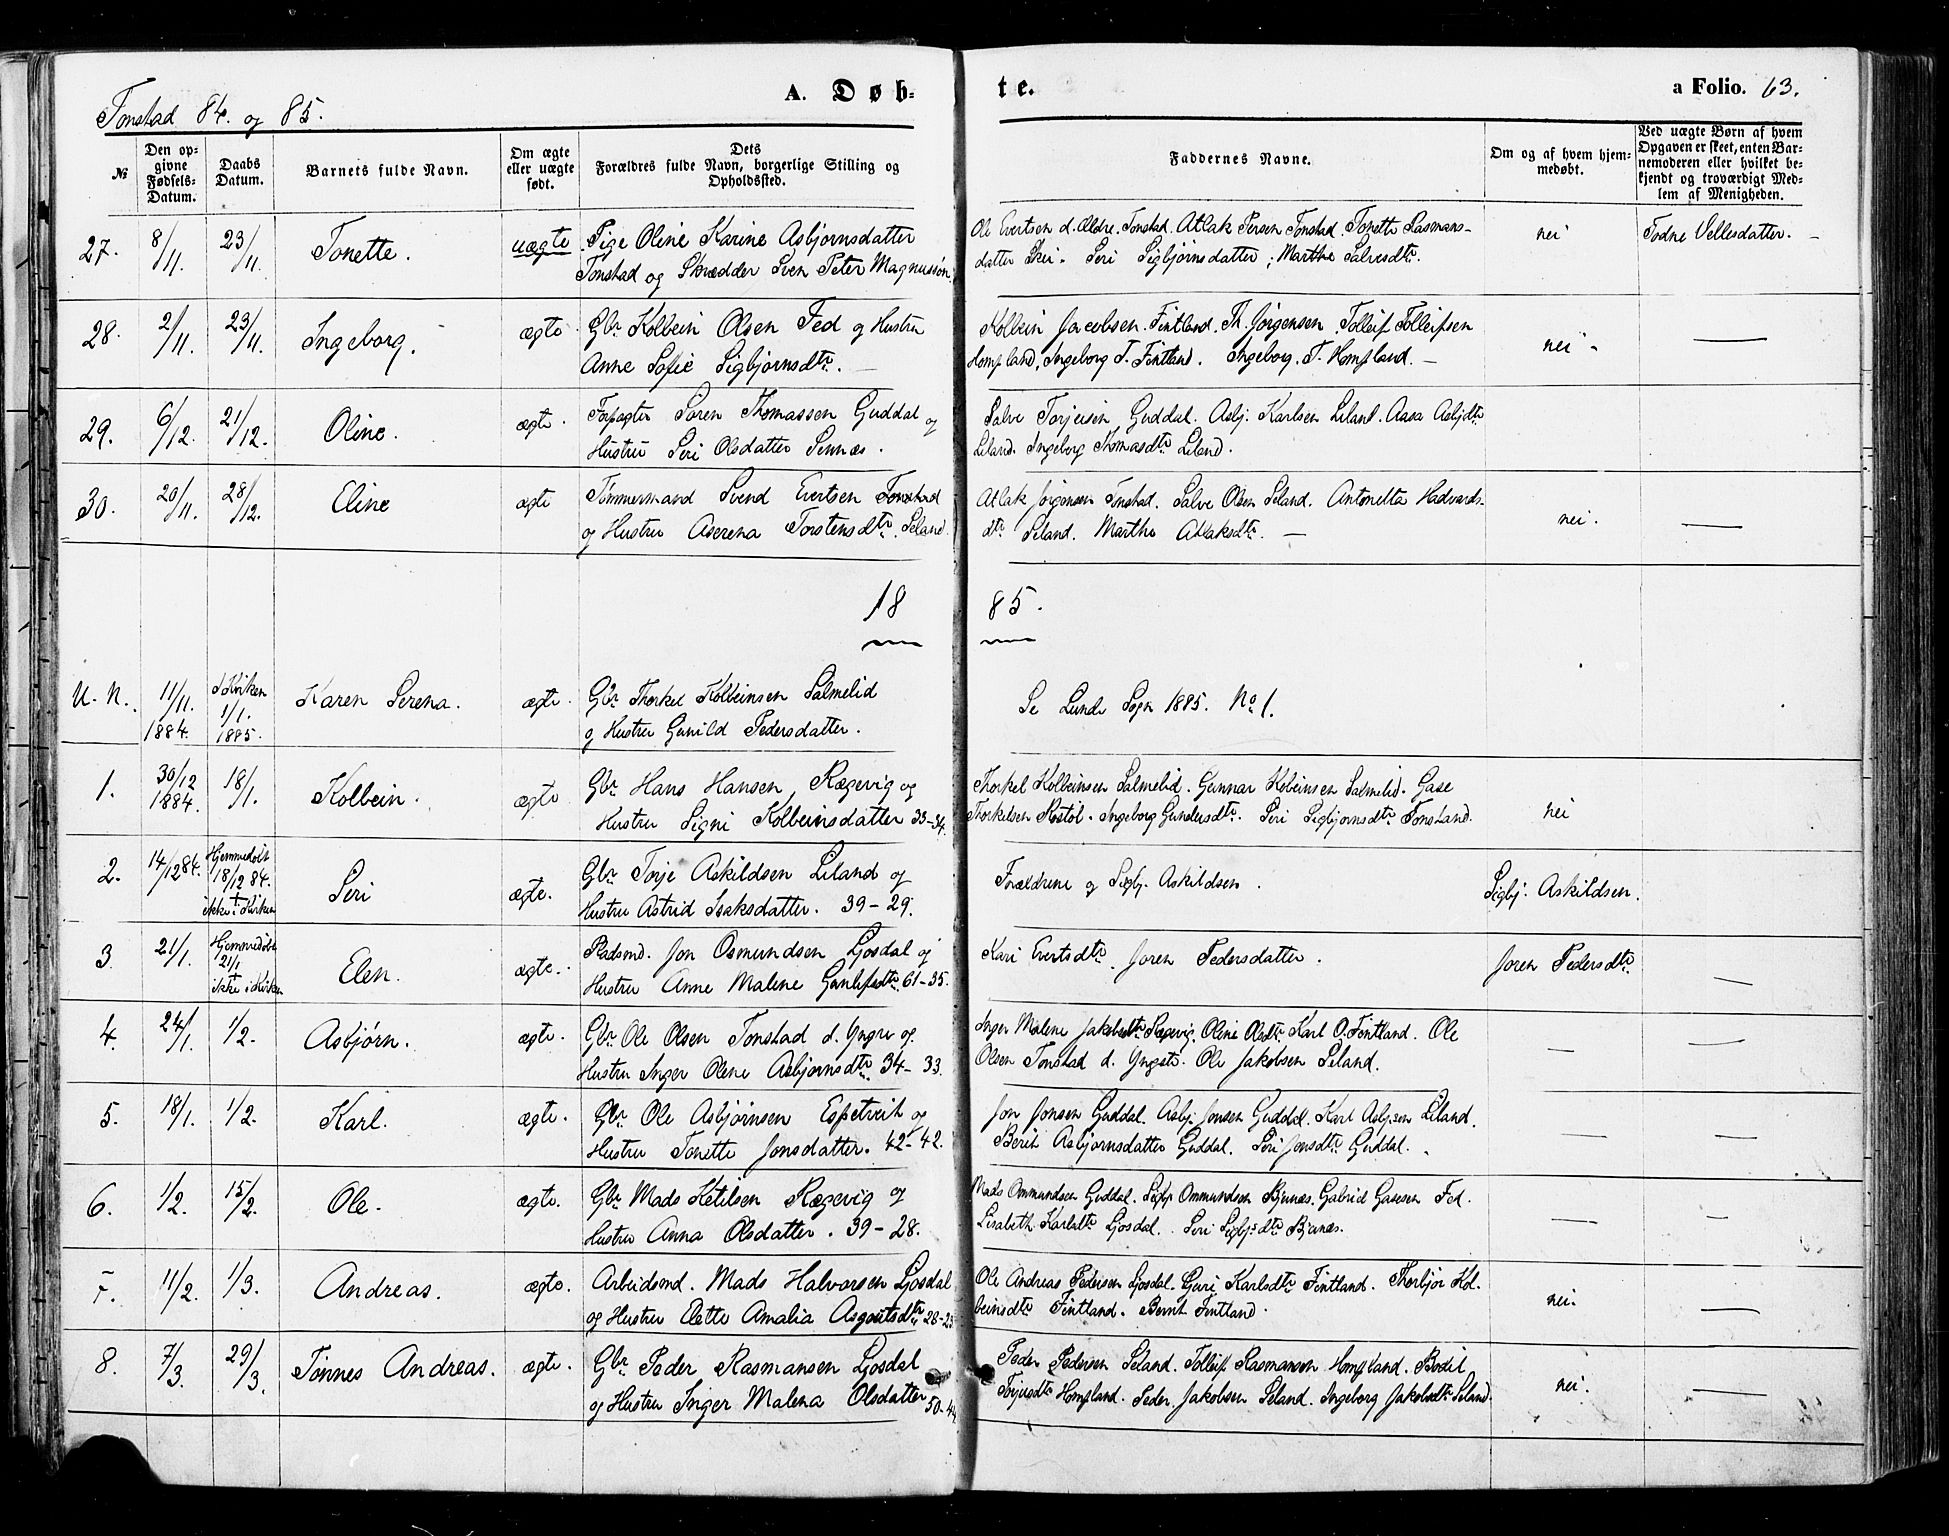 A. Døb-
te.
a Folio. 63.
Tonstad 84. og 85.
№
Den op-
givne
Fødsels-
Datum.
Daabs
Datum.
Barnets fulde Navn.
Om ægte
eller uægte
født.
Dets
Forældres fulde Navn, borgerlige Stilling og
Opholdssted.
Faddernes Navne.
Om og af hvem hjem-
medøbt.
Ved uægte Børn af hvem
Opgaven er skeet, enten Bar-
nemoderen eller hvilket be-
kjendt og troværdigt Med-
lem af Menigheden.
27. 8/11. 23/11. Tonette. uægte Pige Oline Karine Asbjørnsdatter
Tonstad og Skrædder Sven Peter Magnussøn
Ole Evertsen d. Ældre. Tonstad. Atlak Persen Tonstad. Tonette Rasmans-
datter Skei. Seri Sigbjørnsdatter; Marthe Salvesdtr.
nei Todne Vellesdatter. —
28. 2/11. 23/11. Ingeborg. ægte Gbr Kolbein Olsen Fed og Hustru
Anne Sofie Sigbjørnsdtr. —
Kolbein Jacobsen. Fintland. Th. Jörgensen. Tolleif Tolleifsen
Hompland, Ingeborg T. Fintland. Ingeborg. T. Hompland. —
nei - —
29. 6/12. 21/12. Oline. ægte. Forpagter Sören Thomassen Guddal og
Hustru Seri Olsdatter Sennæs.
Salve Torjeisen Guddal. Asbj. Karlsen Liland. Aasa Asbjdtr
Liland. Ingeborg Thomasdtr Liland.
30. 20/11. 28/12. Eline ægte Tømmermand Svend Evertsen Tonstad
og Hustru Aserena Torstensdtr. Seland.
Atlak Jörgensen Tonstad. Salve Olsen Seland. Antonetta Hadvards-
dtr Seland. Marthe Atlaksdtr. —
nei. —
18 85.
U. N. 11/11. 1884. i Kirken 1/1. 1885. Karen Serena. ægte. Gbr Thorkel Kolbeinsen Salmelid
og Hustru Gunild Pedersdatter.
Se Lunde Sogn 1885. No 1.
1. 30/12 1884. 18/1. Kolbein. ægte Gbr Hans Hansen Rægevig og
Hustru Signi Kolbeinsdatter 33-34.
Thorkel Kolbeinsen Salmelid. Gunnar Kobeinsen Salmelid. Gase
Thorkelsen Røstøl. Ingeborg Gundersdtr. Seri Sigbjørnsdtr Tonstand.
nei
2. 14/12 84. Hjemmedøbt 18/12 84. † ikke i Kirken Seri ægte. Gbr Torje Askildsen Liland og
Hustru Astrid Isaksdatter. 39-29.
Forældrene og Sigbj. Askildsen.
Sigbj. Askildsen.
3. 21/1. Hjemmedøbt 21/1 ikke i Kirken Elen. ægte. Pladsmd. Jon Osmundsen Ljosdal og
Hustru Anne Malene Gunlefsdtr. 61-35.
Kari Evertsdtr. Joren Pedersdatter.
Joren Pedersdtr —
4. 24/1. 1/2. Asbjørn. ægte. Gbr Ole Olsen Tonstad d. Yngre og
Hustru Inger Olene Asbjørnsdtr 34-33.
Inger Malene Jakobsdtr. Rægevig. Oline Olsdtr. Karl O. Fintland. Ole
Olsen Tonstad d. Yngste. Ole Jakobsen Seland.
— —
5. 18/1. 1/2. Karl. ægte. Gbr Ole Asbjørnsen Espetveit og
Hustru Tonette Jonsdatter. 42-42.
Jon Jonsen Guddal. Asbj. Jonsen Guddal. Karl Asbj.sen Liland.
Berit Asbjørnsdatter Guddal. Seri Jonsdtr Guddal.
— —
6. 1/2. 15/2. Ole. ægte. Gbr Mads Ketilsen Rægevig og
Hustru Anna Olsdatter. 39-28.
Mads Ommundsen Guddal. Sigbj. Ommundsen Bjunæs. Gabriel Gasesen Fed.
Lisabeth Karlsdtr Ljosdal. Seri Sigbj:dtr Bjunæs.
— —
7. 11/2. 1/3. Andreas. ægte. Arbeidsmd. Mads Halvorsen Ljosdal
og Hustru Elette Amalia Asgautsdtr 28-23
Ole Andreas Pedersen Ljosdal. Guri Karlsdtr Fintland. Thorbjør Kol-
beinsdtr Fintland. Bernt Fintland.
nei. —
8. 7/3. 29/3. Tønnes Andreas. ægte. Gbr Peder Rasmansen Ljosdal
og Hustru Inger Malena Olsdatter 50-44
Peder Pedersen Seland. Tolleif Rasmansen Hompland. Bodil
Torjusdtr Hompland. Peder Jakobsen Seland. Ingeborg Jakobsdtr Seland.
nei. —